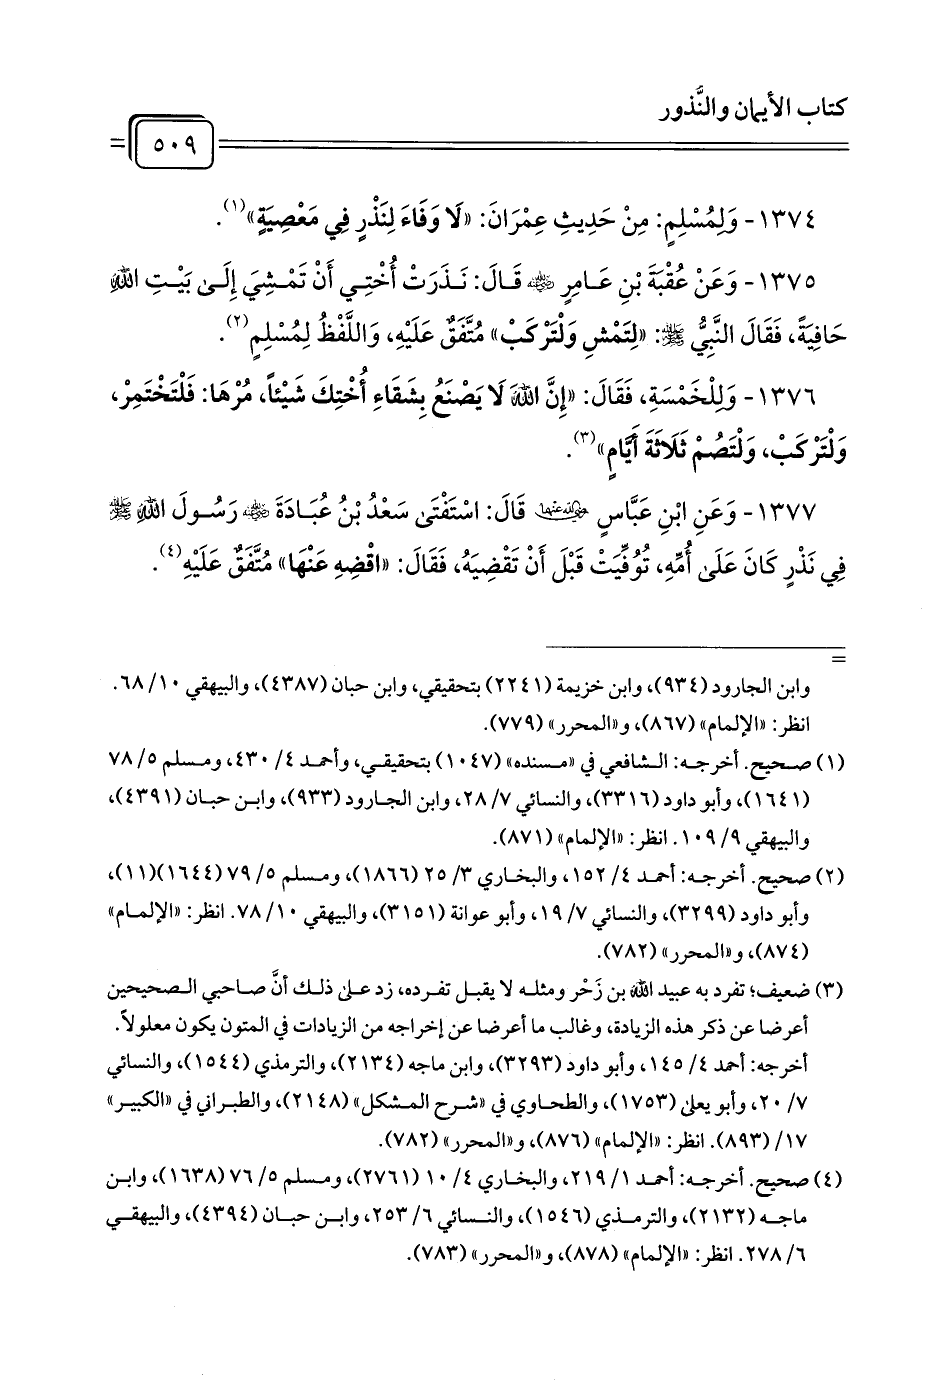 كتاب الأيمان والنُّذور
٥٠٩
١٣٧٤- وَلِمُسْلِمٍ: مِنْ حَدِيثِ عِمْرَانَ: «لَا وَفَاءَ لِنَذْرٍ فِي مَعْصِيَةٍ»(١).
١٣٧٥- وَعَنْ عُقْبَةَ بْنِ عَامِرٍ ﵁ قَالَ: نَذَرَتْ أُخْتِي أَنْ تَمْشِيَ إِلَى بَيْتِ اللهِ
حَافِيَةً، فَقَالَ النَّبِيُّ ﷺ: «لِتَمْشِ وَلْتَرْكَبْ» مُتَّفَقٌ عَلَيْهِ، وَاللَّفْظُ لِمُسْلِمٍ(٢).
١٣٧٦- وَلِلْخَمْسَةِ، فَقَالَ: «إِنَّ اللهَ لَا يَصْنَعُ بِشَقَاءِ أُخْتِكَ شَيْئاً، مُرْهَا: فَلْتَخْتَمِرْ،
وَلْتَرْكَبْ، وَلْتَصُمْ ثَلَاثَةَ أَيَّامٍ»(٣).
١٣٧٧- وَعَنِ ابْنِ عَبَّاسٍ ﵄ قَالَ: اسْتَفْتَى سَعْدُ بْنُ عُبَادَةَ ﵁ رَسُولَ اللهِ ﷺ
فِي نَذْرٍ كَانَ عَلَى أُمِّهِ، تُوُفِّيَتْ قَبْلَ أَنْ تَقْضِيَهُ، فَقَالَ: «اقْضِهِ عَنْهَا» مُتَّفَقٌ عَلَيْهِ(٤).
=
وابن الجارود (٩٣٤)، وابن خزيمة (٢٢٤١) بتحقيقي، وابن حبان (٤٣٨٧)، والبيهقي ١٠/ ٦٨.
انظر: «الإلمام» (٨٦٧)، و«المحرر» (٧٧٩).
(١) صحيح. أخرجه: الشافعي في «مسنده» (١٠٤٧) بتحقيقي، وأحمد ٤/ ٤٣٠، ومسلم ٥/ ٧٨
(١٦٤١)، وأبو داود (٣٣١٦)، والنسائي ٧/ ٢٨، وابن الجارود (٩٣٣)، وابن حبان (٤٣٩١)،
والبيهقي ٩/ ١٠٩. انظر: «الإلمام» (٨٧١).
(٢) صحيح. أخرجه: أحمد ٤/ ١٥٢، والبخاري ٣/ ٢٥ (١٨٦٦)، ومسلم ٥/ ٧٩ (١٦٤٤)(١١)،
وأبو داود (٣٢٩٩)، والنسائي ٧/ ١٩، وأبو عوانة (٣١٥١)، والبيهقي ١٠/ ٧٨. انظر: «الإلمام»
(٨٧٤)، و«المحرر» (٧٨٢).
(٣) ضعيف؛ تفرد به عبيد الله بن زَحْر ومثله لا يقبل تفرده، زد على ذلك أنَّ صاحبي الصحيحين
أعرضا عن ذكر هذه الزيادة، وغالب ما أعرضا عن إخراجه من الزيادات في المتون يكون معلولاً.
أخرجه: أحمد ٤/ ١٤٥، وأبو داود (٣٢٩٣)، وابن ماجه (٢١٣٤)، والترمذي (١٥٤٤)، والنسائي
٧/ ٢٠، وأبو يعلى (١٧٥٣)، والطحاوي في «شرح المشكل» (٢١٤٨)، والطبراني في «الكبير»
١٧/ (٨٩٣). انظر: «الإلمام» (٨٧٦)، و«المحرر» (٧٨٢).
(٤) صحيح. أخرجه: أحمد ١/ ٢١٩، والبخاري ٤/ ١٠ (٢٧٦١)، ومسلم ٥/ ٧٦ (١٦٣٨)، وابن
ماجه (٢١٣٢)، والترمذي (١٥٤٦)، والنسائي ٦/ ٢٥٣، وابن حبان (٤٣٩٤)، والبيهقي
٦/ ٢٧٨. انظر: «الإلمام» (٨٧٨)، و«المحرر» (٧٨٣).